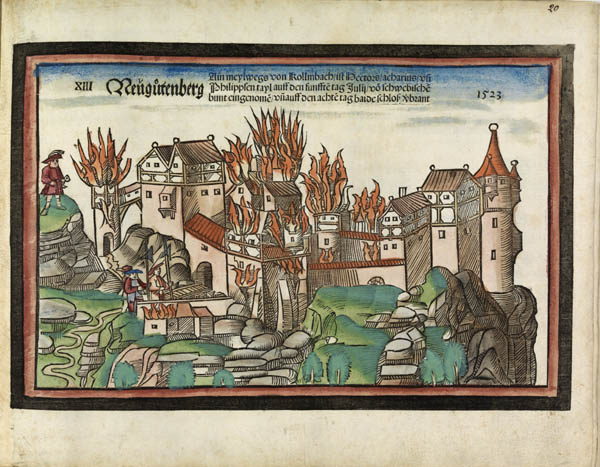 20
XIII Neugutenberg
Ain meylwegs von Kollmbach ist Hectors, acharius, vn̄
Philippsen tayl auff den funfftē tag Julij vō schwebischē
bunt eingenomē, vn̄ auff den achtē tag baide schloß Vbrant
1523